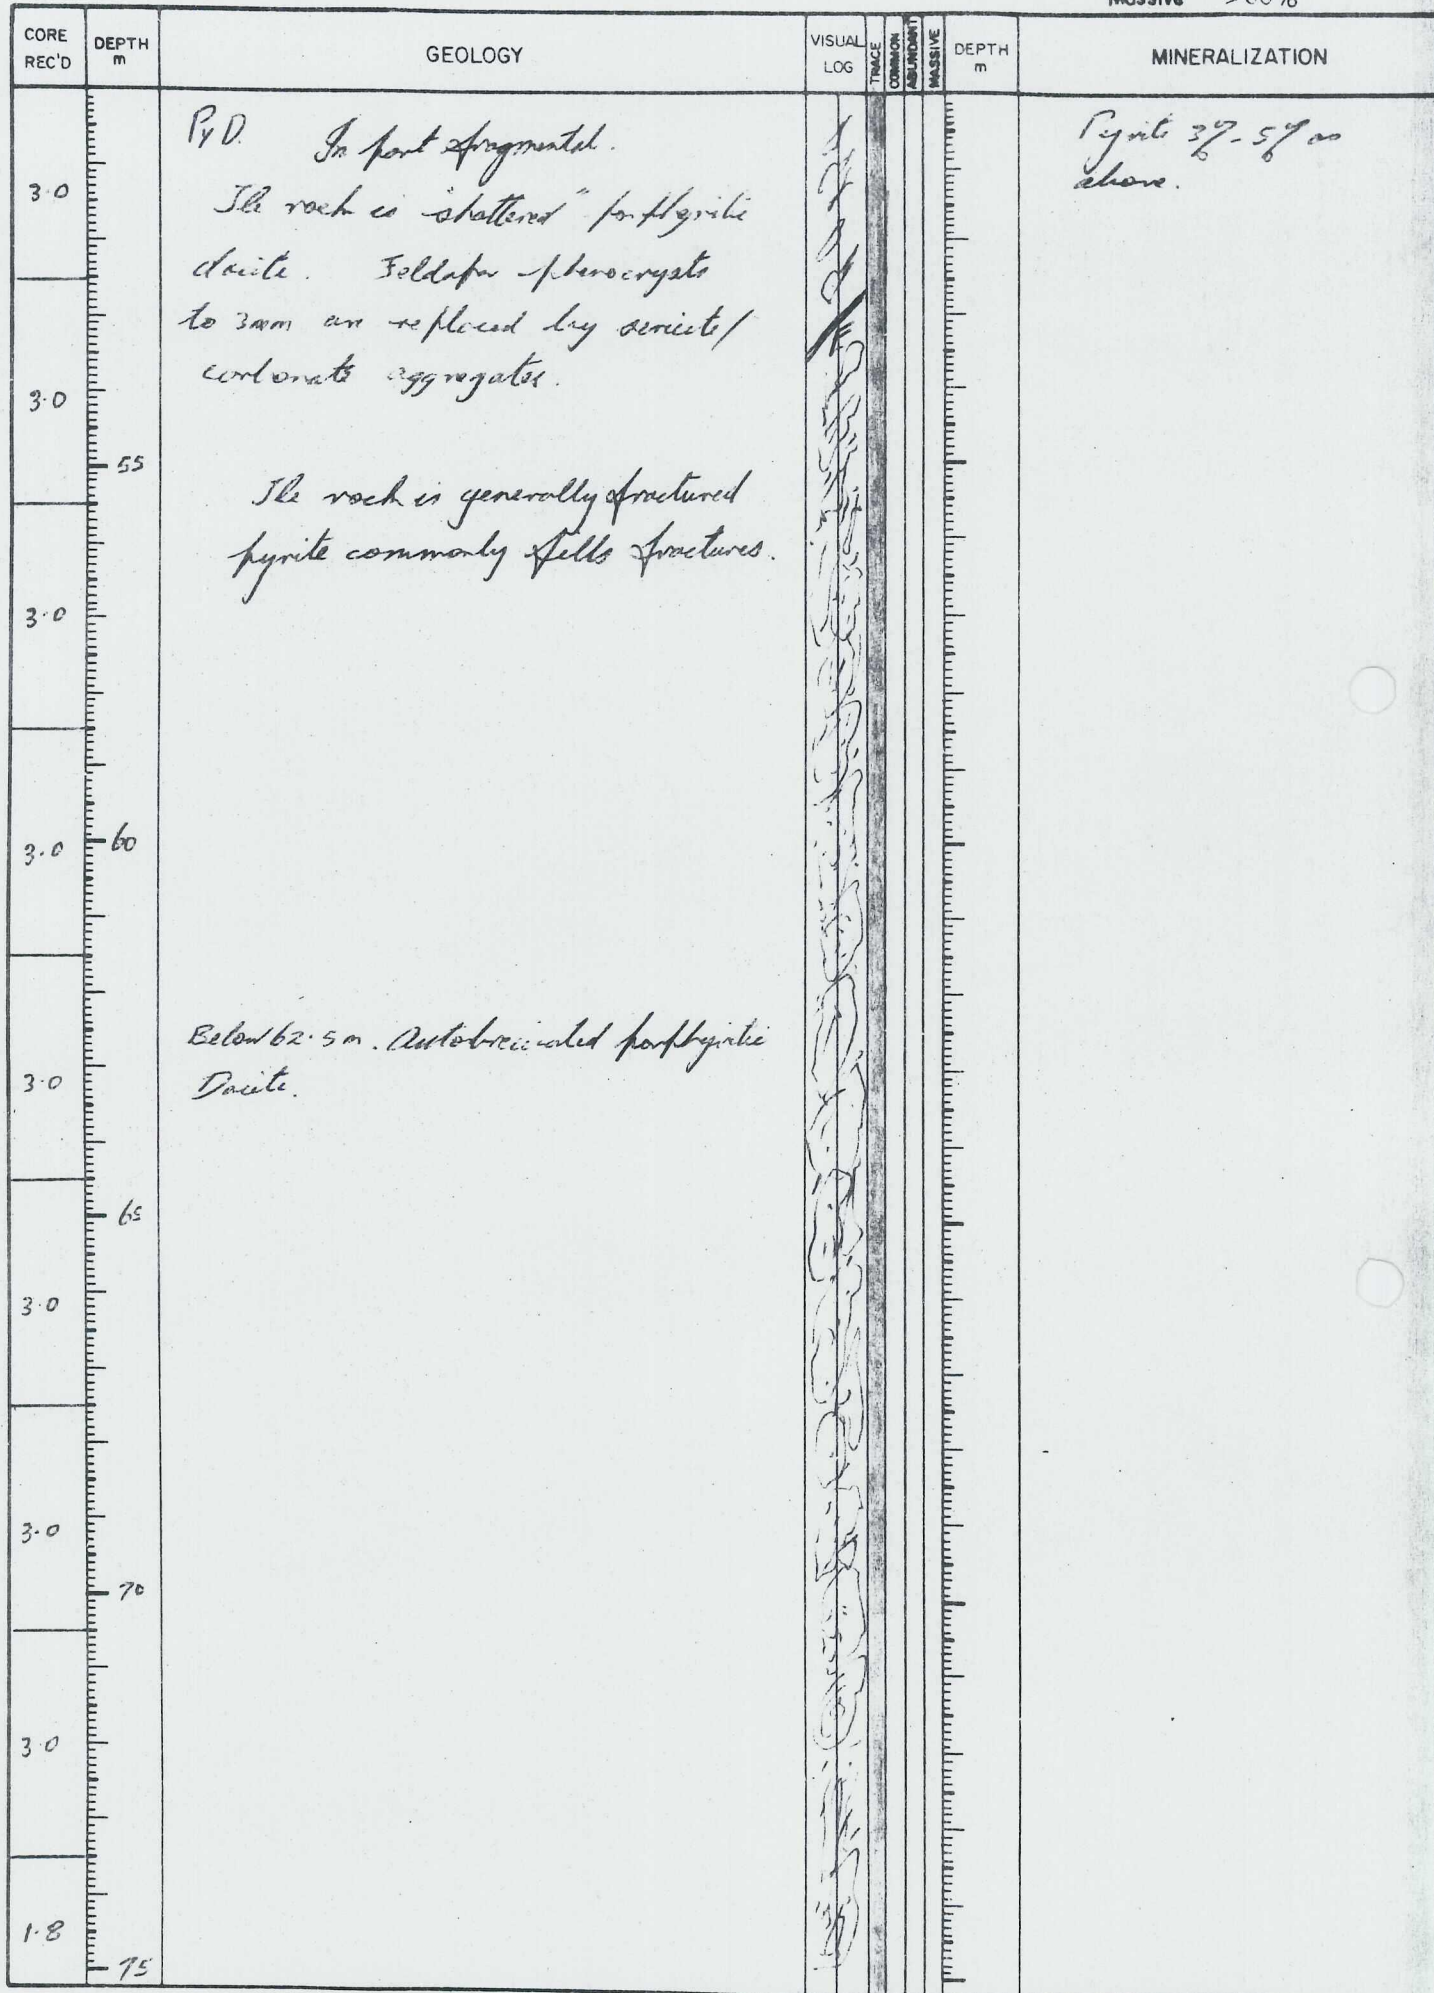 Massive >60%
CORE REC'D
DEPTH m
GEOLOGY
VISUAL LOG
TRACE
COMMON
ABUNDANT
MASSIVE
DEPTH m
MINERALIZATION
PyD. In part fragmental.
The rock is "shattered" porphyritic
dacite. Feldspar phenocrysts
to 3mm are replaced by sericite/
carbonate aggregates.
The rock is generally fractured
pyrite commonly fills fractures.
Below 62.5m. Autobrecciated porphyritic
Dacite.
Pyrite 3% - 5% as
above.
3.0
3.0
55
3.0
3.0
60
3.0
65
3.0
3.0
70
3.0
1.8
75